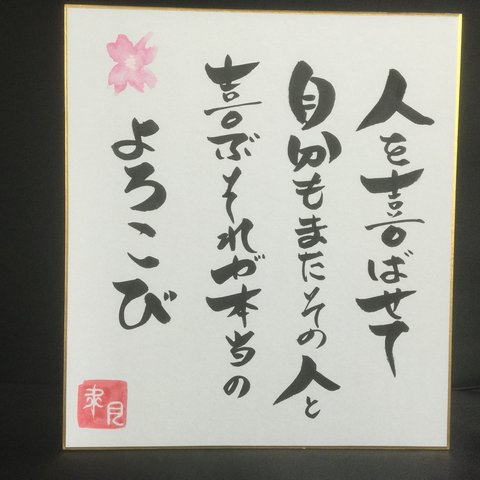 人を喜ばせて
自分もまたその人と
喜ぶそれが本当の
よろこび